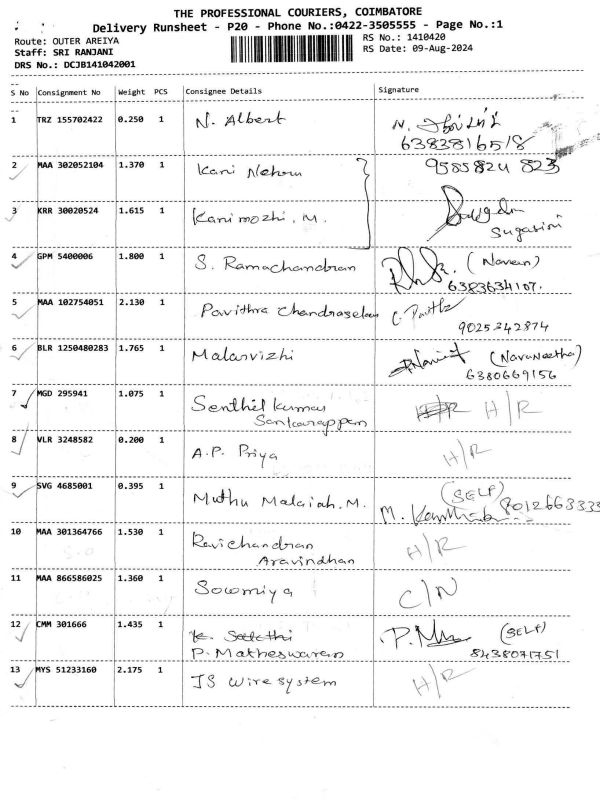 THE PROFESSIONAL COURIERS, COIMBATORE
Delivery Runsheet - P20 - Phone No.:0422-3505555 - Page No.:1
Route: OUTER AREIYA RS No.: 1410420
Staff: SRI RANJANI RS Date: 09-Aug-2024
DRS No.: DCJB141042001
S No Consignment No Weight PCS Consignee Details Signature
1 TRZ 155702422 0.250 1 N. Albert N.
6383816518
2 MAA 302052104 1.370 1 Kani 9585824 823
3 KRR 30020524 1.615 1 Kanimozhi. M.
Sugasini
4 GPM 5400006 1.800 1 S. Ramachandran (Naveen)
6383634107.
5 MAA 102754051 2.130 1 Pavithra Chandrasekan
9025342874
6 BLR 1250480283 1.765 1 Malarvizhi (Navaneetha)
6380669156
7 MGD 295941 1.075 1 Senthil Kumar H/R
Sankarappan
8 VLR 3248582 0.200 1 A.P. Priya H/R
9 SVG 4685001 0.395 1 Muthu Malaiah. M. (SELF)
M. 8012663333
10 MAA 301364766 1.530 1 Ravichandran H/R
Aravindhan
11 MAA 866586025 1.360 1 Sowmiya C/N
12 CMM 301666 1.435 1 K. Sakthi (SELF)
P. Matheswaran 8438071751
13 MYS 51233160 2.175 1 JS wire system H/R